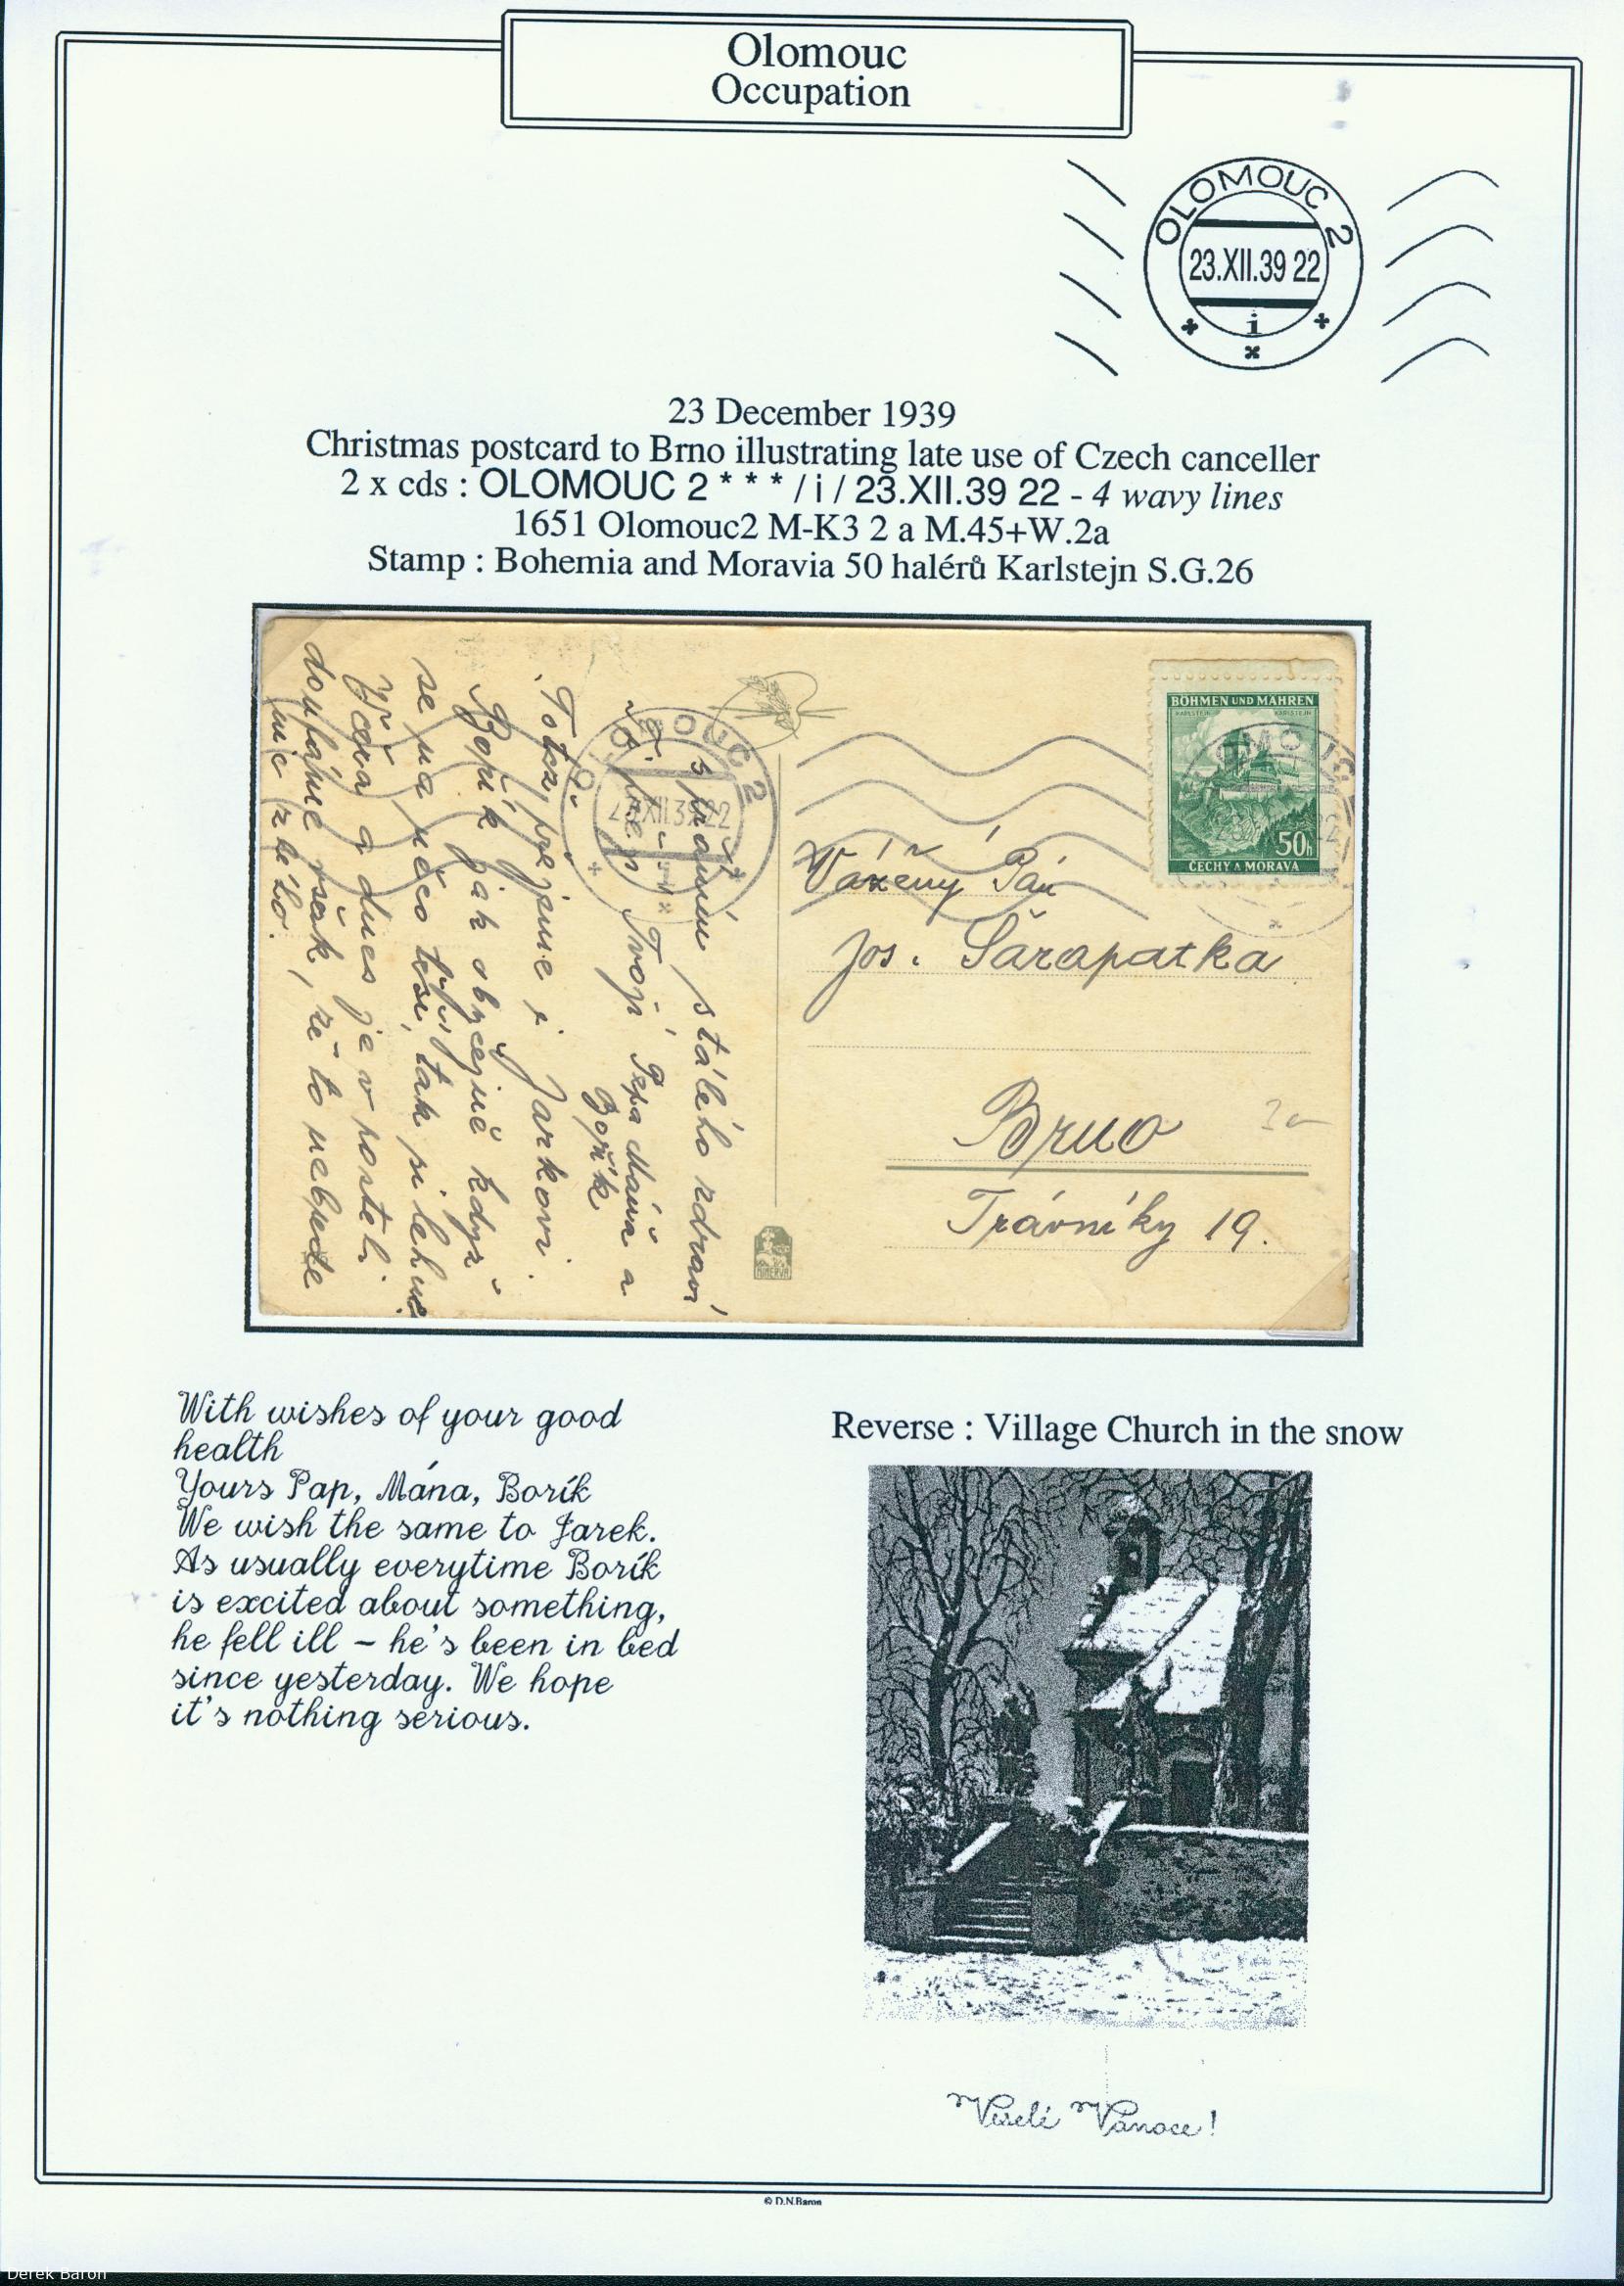 Olomouc
Occupation
OLOMOUC 2
23.XII.39 22
i
23 December 1939
Christmas postcard to Brno illustrating late use of Czech canceller
2 x cds : OLOMOUC 2 * * * / i / 23.XII.39 22 - 4 wavy lines
1651 Olomouc2 M-K3 2 a M.45+W.2a
Stamp : Bohemia and Moravia 50 halérů Karlstejn S.G.26
BÖHMEN UND MÄHREN
KARLSTEIN KARLSTEJN
50h
ČECHY A MORAVA
OLOMOUC 2
23.XII.39 22
s přáním stálého zdraví
Tvoji Pepa Máňa a
Bořík
Totéž přejeme i Jarkovi.
Bořík jak obyčejně když
se na něco těší, tak si lehne.
Včera a dnes je v posteli
doufáme však, že to nebude
nic zlého.
Vážený Pán
Jos. Šarapatka
Brno
Trávníky 19.
MINERVA
With wishes of your good
health
Yours Pap, Mána, Borík
We wish the same to Jarek.
As usually everytime Borík
is excited about something,
he fell ill – he's been in bed
since yesterday. We hope
it's nothing serious.
Reverse : Village Church in the snow
Veselé Vánoce!
© D.N.Baron
Derek Baron